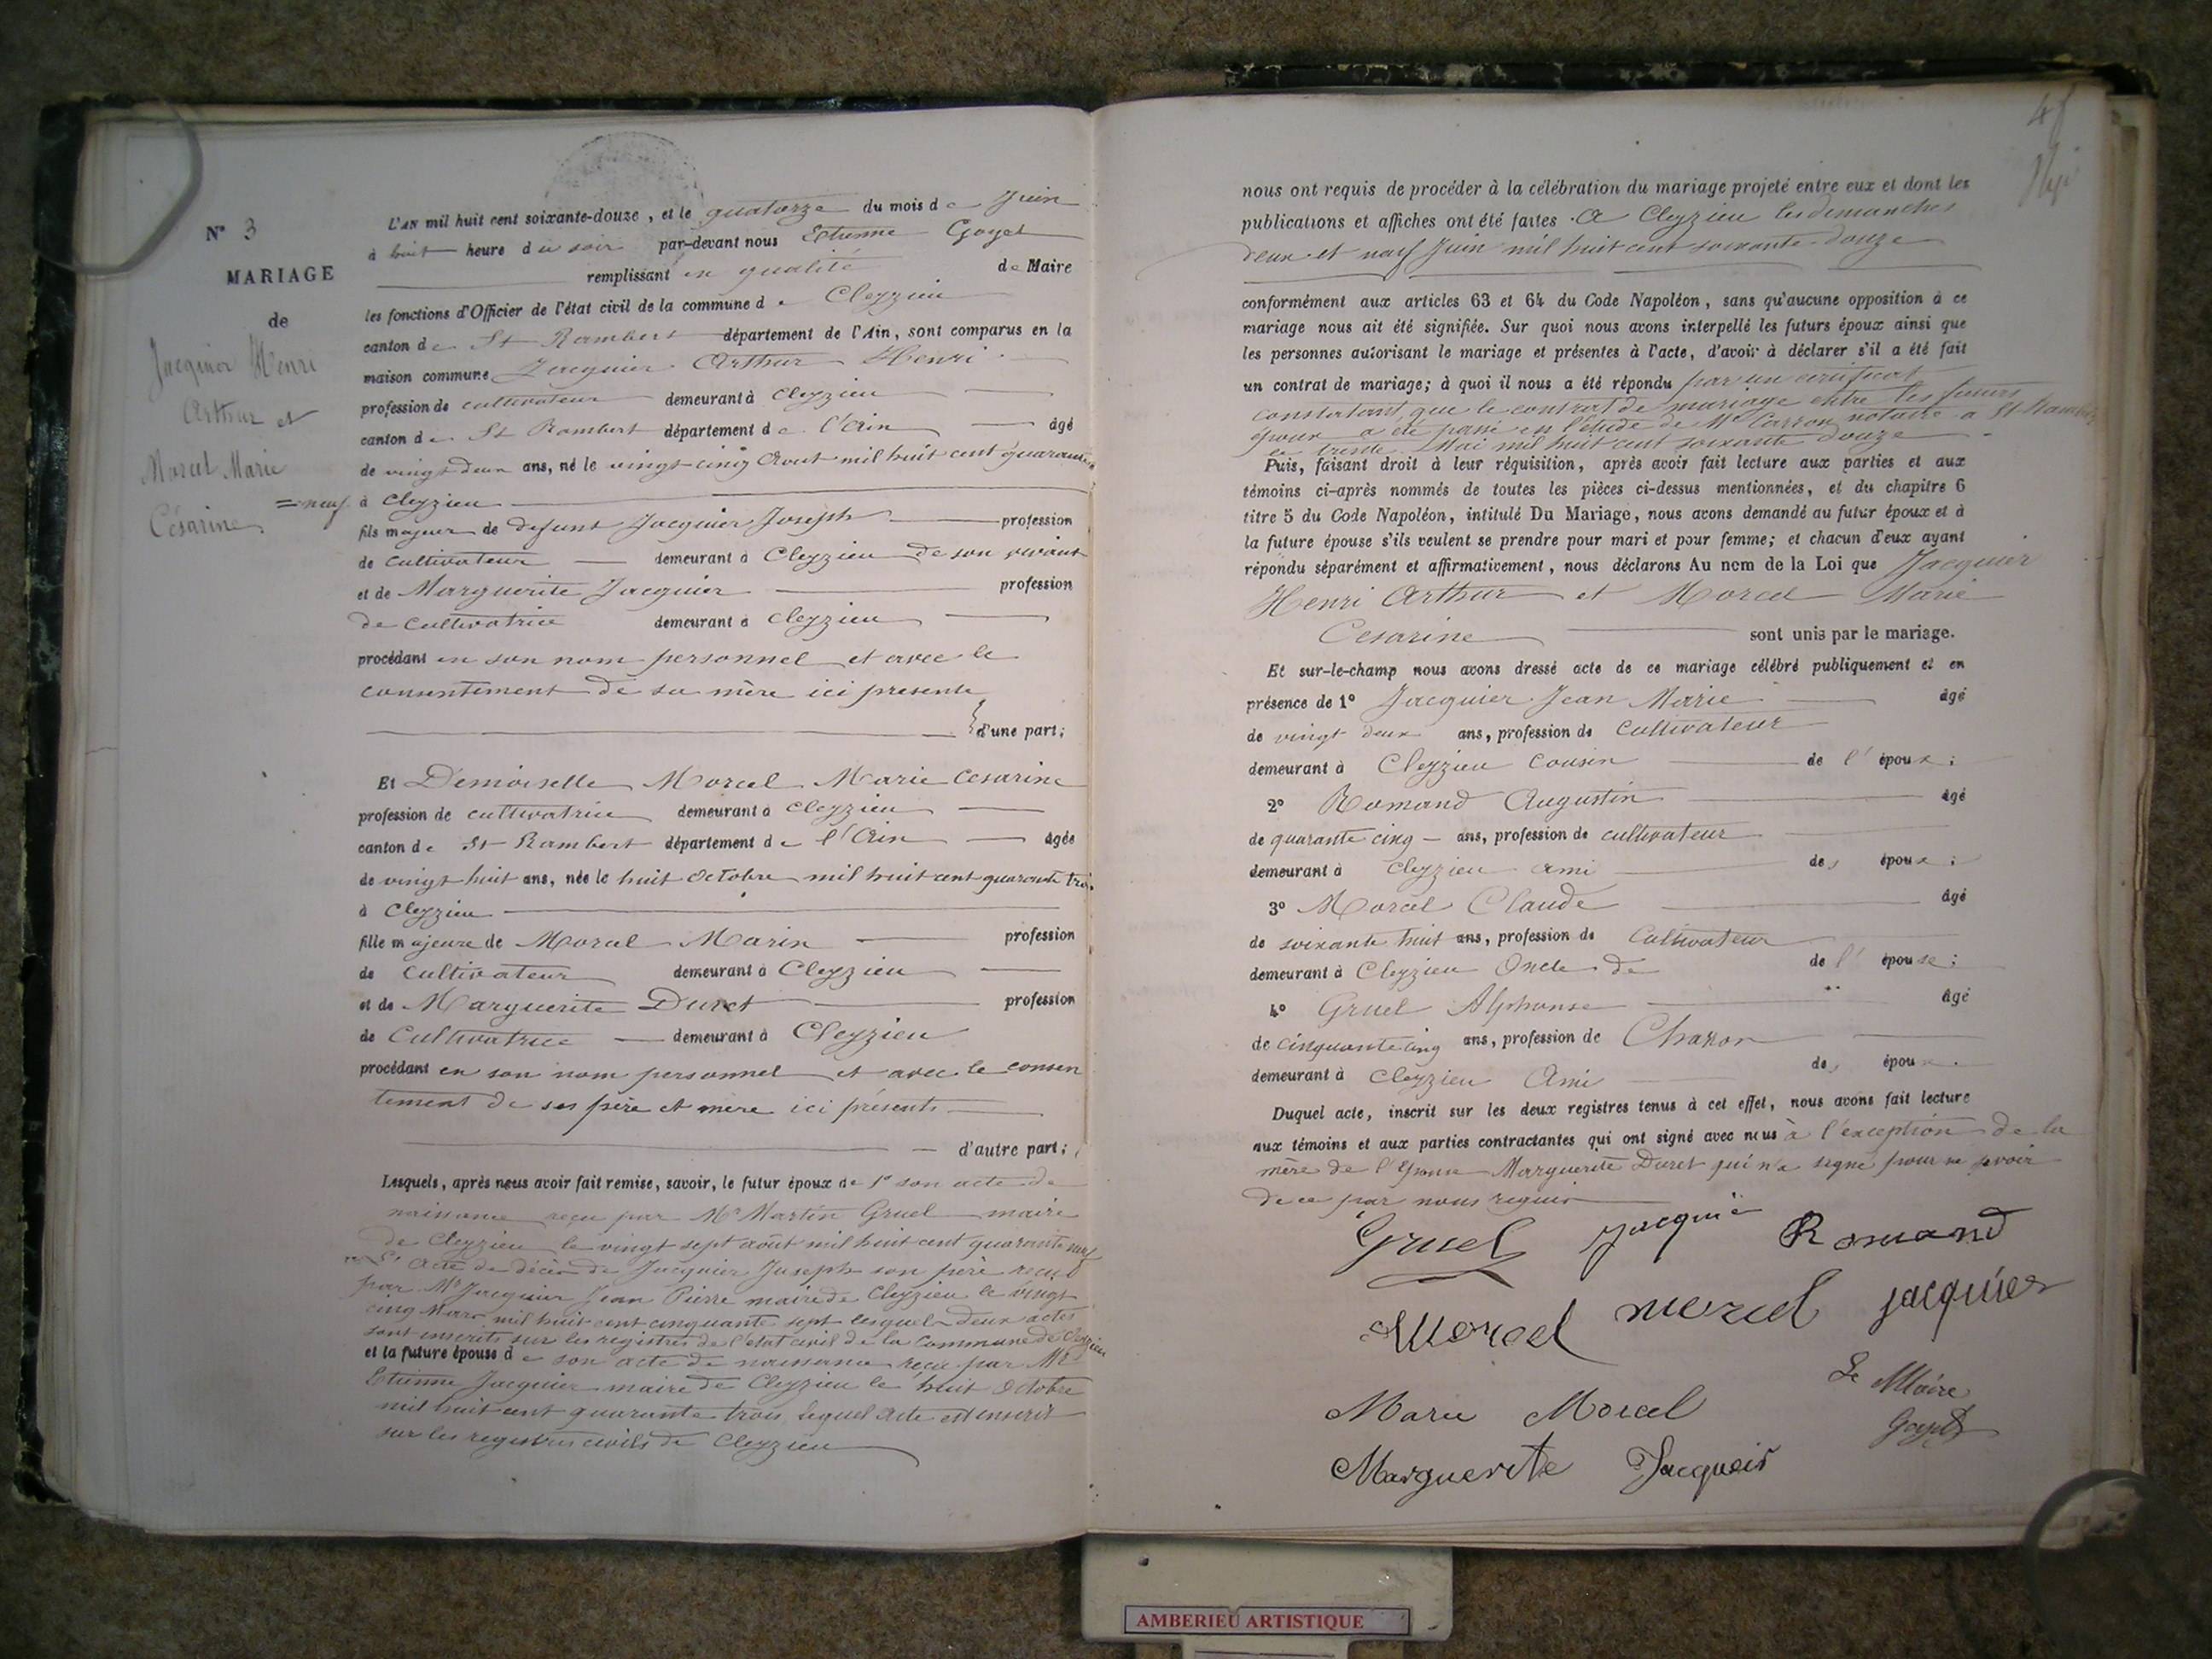 N° 3
MARIAGE
de
Jacquier Henri
Arthur et
Morcel Marie
Césarine
L'AN mil huit cent soixante-douze, et le quatorze du mois de Juin
à huit heure du soir par-devant nous Etienne Goyet
remplissant en qualité de Maire
les fonctions d'Officier de l'état civil de la commune de Cleyzieu
canton de St Rambert département de l'Ain, sont comparus en la
maison commune Jacquier Arthur Henri
profession de cultivateur demeurant à Cleyzieu
canton de St Rambert département de l'Ain âgé
de vingt deux ans, né le vingt cinq Aout mil huit cent quarante
= neuf à Cleyzieu
fils majeur de defunt Jacquier Joseph profession
de cultivateur demeurant à Cleyzieu de son vivant
et de Marguerite Jacquier profession
de cultivatrice demeurant à Cleyzieu
procédant en son nom personnel et avec le
consentement de sa mère ici presente
d'une part;
Et Demoiselle Morcel Marie Cesarine
profession de cultivatrice demeurant à Cleyzieu
canton de St Rambert département de l'Ain âgée
de vingt huit ans, née le huit Octobre mil huit cent quarante trois
à Cleyzieu
fille majeure de Morcel Marin profession
de cultivateur demeurant à Cleyzieu
et de Marguerite Duret profession
de Cultivatrice demeurant à Cleyzieu
procédant en son nom personnel et avec le consen
tement de ses père et mère ici présents
d'autre part;
Lesquels, après nous avoir fait remise, savoir, le futur époux de 1° son acte de
naissance reçu par Mr Martin Gruel maire
de Cleyzieu le vingt sept août mil huit cent quarante neuf
2° Acte de décès de Jacquier Joseph son père reçu
par Mr Jacquier Jean Pierre maire de Cleyzieu le vingt
cinq Mars mil huit cent cinquante sept lesquels deux actes
sont inscrits sur les registres de l'état civil de la Commune de Cleyzieu
et la future épouse de son acte de naissance reçu par Mr
Etienne Jacquier maire de Cleyzieu le huit Octobre
mil huit cent quarante trois lequel acte est inscrit
sur les registres civils de Cleyzieu
nous ont requis de procéder à la célébration du mariage projeté entre eux et dont les
publications et affiches ont été faites A Cleyzieu les demanches
deux et neuf Juin mil huit cent soixante-douze
conformément aux articles 63 et 64 du Code Napoléon, sans qu'aucune opposition à ce
mariage nous ait été signifiée. Sur quoi nous avons interpellé les futurs époux ainsi que
les personnes autorisant le mariage et présentes à l'acte, d'avoir à déclarer s'il a été fait
un contrat de mariage; à quoi il nous a été répondu par un certificat
constatant que le contrat de mariage entre les futurs
époux a été passé en l'étude de Mr Carron notaire a St Rambert
le trente Mai mil huit cent soixante douze
Puis, faisant droit à leur réquisition, après avoir fait lecture aux parties et aux
témoins ci-après nommés de toutes les pièces ci-dessus mentionnées, et du chapitre 6
titre 5 du Code Napoléon, intitulé Du Mariage, nous avons demandé au futur époux et à
la future épouse s'ils veulent se prendre pour mari et pour femme; et chacun d'eux ayant
répondu séparément et affirmativement, nous déclarons Au nom de la Loi que Jacquier
Henri Arthur et Morcel Marie
Cesarine sont unis par le mariage.
Et sur-le-champ nous avons dressé acte de ce mariage célébré publiquement et en
présence de 1° Jacquier Jean Marie âgé
de vingt deux ans, profession de Cultivateur
demeurant à Cleyzieu Cousin de l'époux;
2° Romand Augustin âgé
de quarante cinq ans, profession de cultivateur
demeurant à Cleyzieu ami des époux;
3° Morcel Claude âgé
de soixante huit ans, profession de Cultivateur
demeurant à Cleyzieu Oncle de de l'épouse;
4° Gruel Alphonse âgé
de cinquante cinq ans, profession de Charon
demeurant à Cleyzieu Ami des époux.
Duquel acte, inscrit sur les deux registres tenus à cet effet, nous avons fait lecture
aux témoins et aux parties contractantes qui ont signé avec nous à l'exception de la
mère de l'épouse Marguerite Duret qui n'a signé pour ne savoir
de ce par nous requis
Gruel Jacquié Romand
Morcel Morcel Jacquier
Marie Morcel
Le Maire
Goyet
Marguerite Jacqueir
AMBERIEU ARTISTIQUE